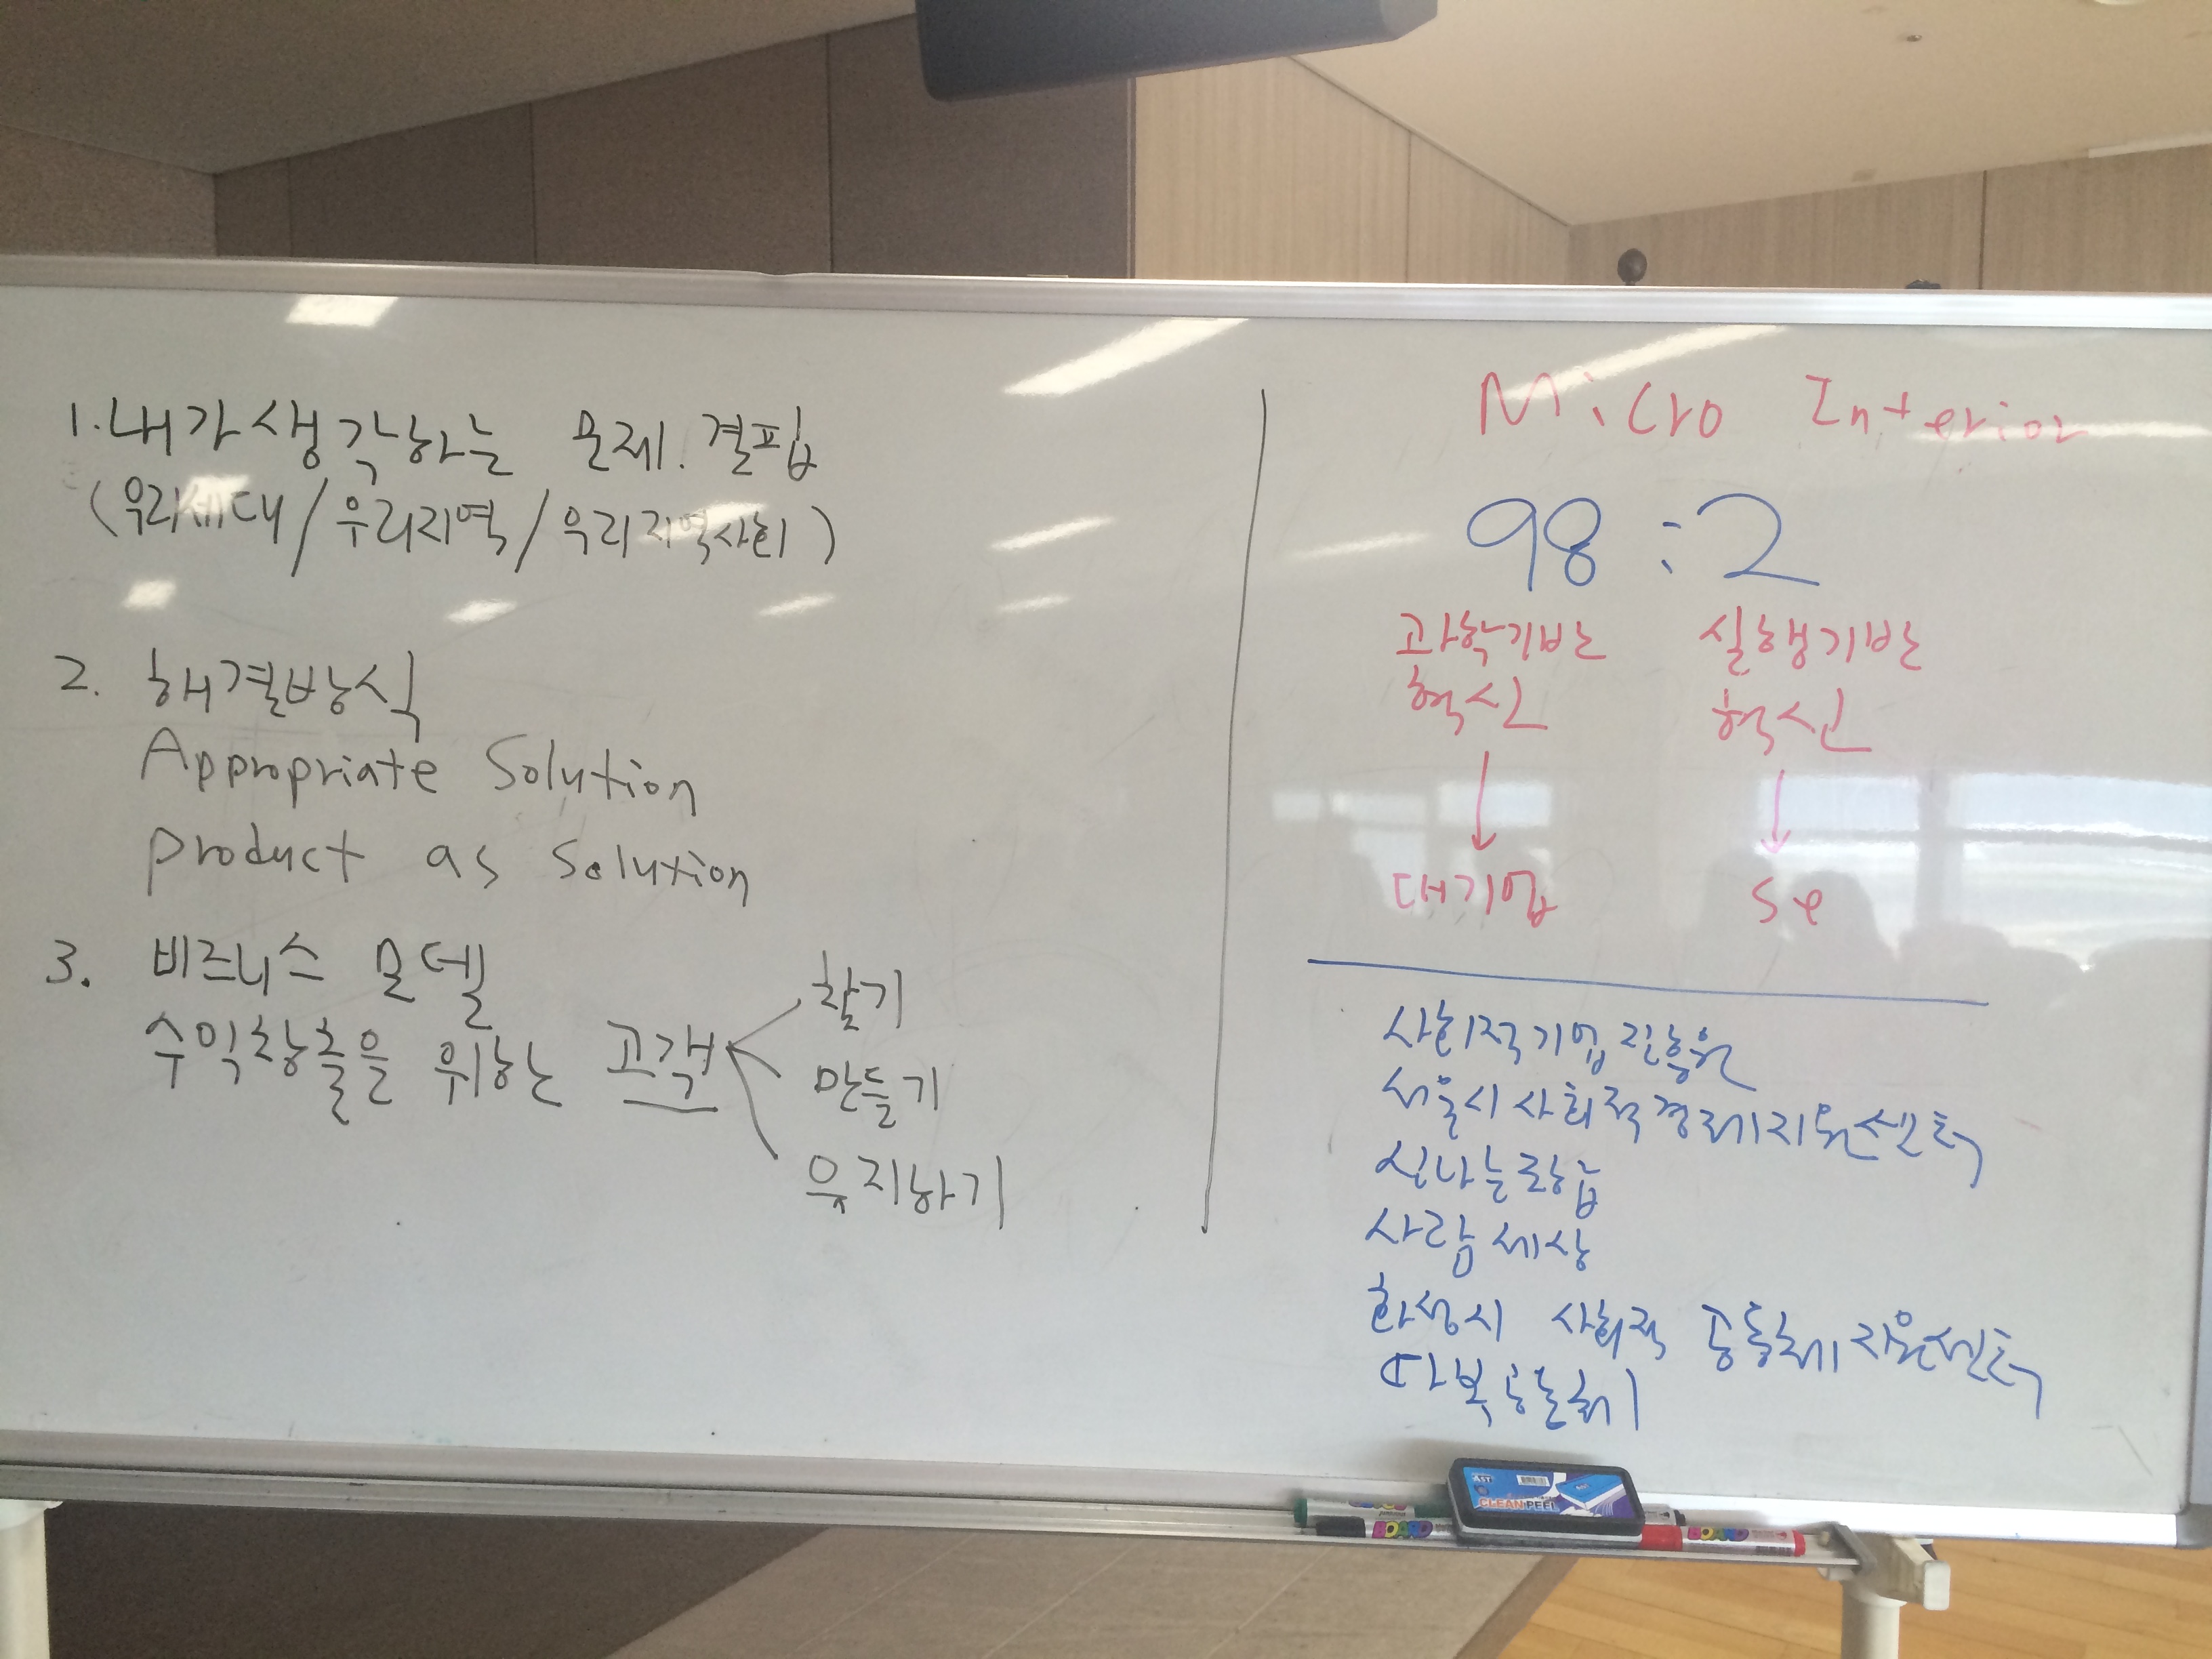 1. 내가 생각하는 문제. 결핍
(우리세대/우리지역/우리지역사회)
2. 해결방식
Appropriate Solution
product as Solution
3. 비즈니스 모델
수익창출을 위한 고객
찾기
만들기
유지하기
Micro Interior
98 : 2
과학기반 실행기반
혁신 혁신
대기업 Se
사회적기업진흥원
서울시사회적경제지원센터
신나는조합
사람세상
화성시 사회적 공동체지원센터
다복공동체
CLEAN PEEL
BOARD
BOARD